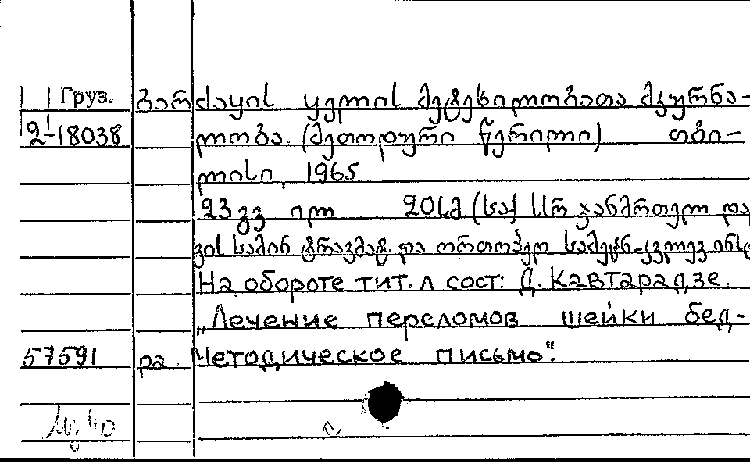 Груз. ბარძაყის ყელის მეტეხილობათა მკურნა-
2-18038 ლობა. (მეთოდური წერილი) თბი-
ლისი, 1965
23 გვ. ილ 20სმ (საქ სსრ ჯანმრთელ და
ვის სამინ ტრავმატ. და ორთოპედ სამეცნ-კვლევ ინსტ
На обороте тит. л сост: Д. Кавтарадзе.
„Лечение переломов шейки бед-
57591 ра. Методическое письмо".